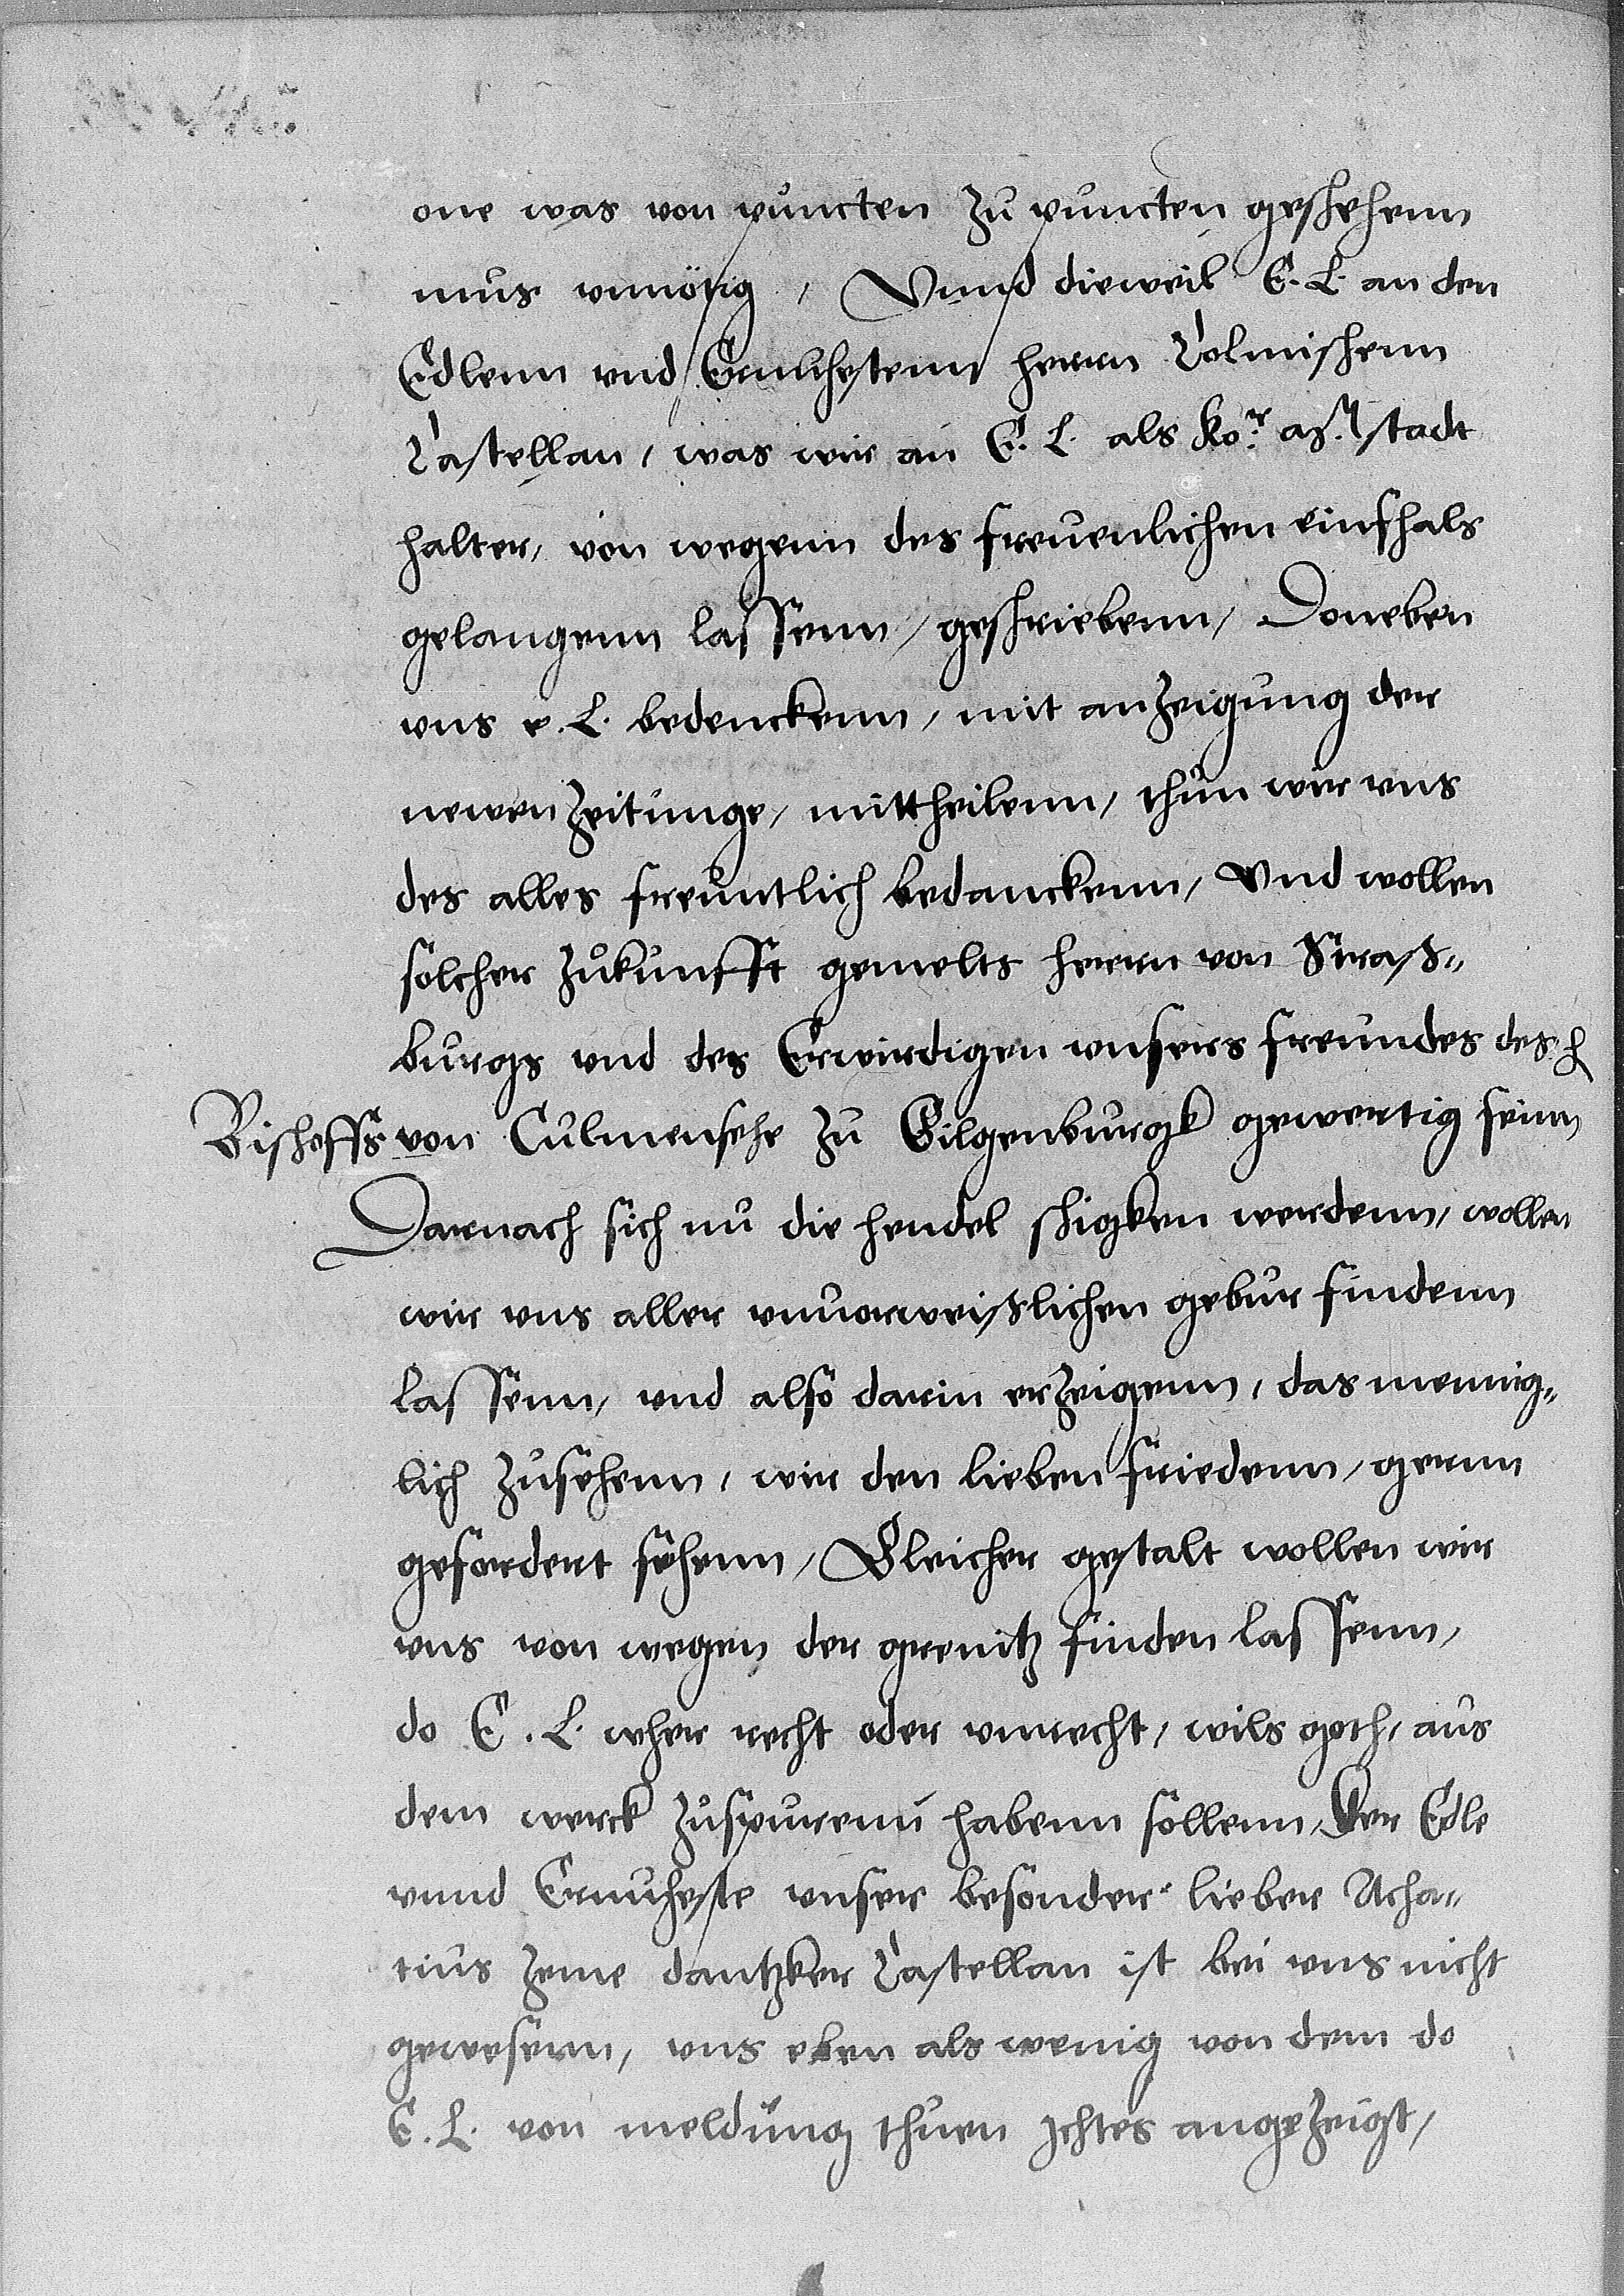 one was von puncten zu puncten geschehenn
mus vnnötig, Vnnd dieweil E. L. an den
Edlenn vnd Ernuhestenn herrn Colmischenn
Castellan, was wir an E. L. als Ko.r Mt. stadt
halter, von wegenn des freuenlichen einfhals
gelangenn lassenn, geschriebenn, Doneben
vns e. L. bedenckenn, mit anzeigung der
newen zeitunge, mittheilenn, thun wir vns
des alles freuntlich bedanckenn, Vnd wollen
solcher zukunfft gemelts herrn von Straß„
burgs vnd des Erwirdigen vnsers freundes des h
Bischoffs von Culmensehe zu Gilgenburgk gewertig sein
Darnach sich nu die hendel schigken werdenn, wollen
wir vns aller vnuorweißlichen gebur findenn
lassenn, vnd also darin erzeigenn, das mennig„
lich zusehenn, wir den lieben friedenn, gernn
gefordert sehenn, Gleicher gestalt wollen wir
vns von wegen der grenitz finden lassenn,
do E. L. wher recht oder vnrecht, wils goth, aus
dem werck zuspurenn habenn sollenn, Der Edle
vnnd Ernuheste vnser besonder lieber Acha„
tius Zeme dantzker Castellan ist bei vns nicht
gewesenn, vns eben als wenig von dem do
E. L. von meldung thuen Ichtes angezeigt,